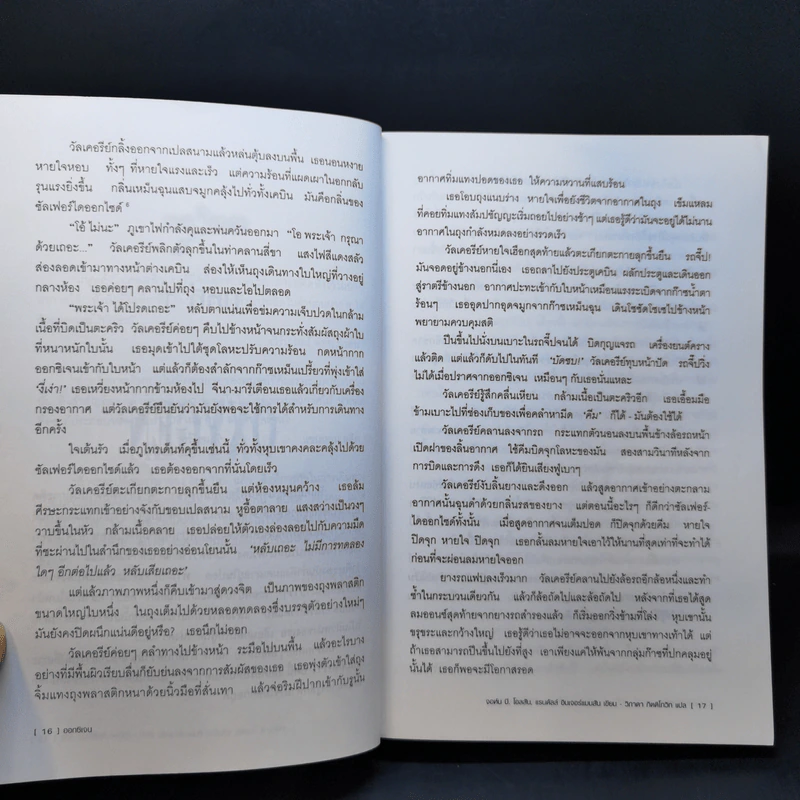 วัลเคอรีย์กลิ้งออกจากเปลสนามแล้วหล่นตุ้บลงบนพื้น เธอนอนหงาย
หายใจหอบ ทั้งๆ ที่หายใจแรงและเร็ว แต่ความร้อนที่แผดเผาในอกกลับ
รุนแรงยิ่งขึ้น กลิ่นเหม็นฉุนแสบจมูกคลุ้งไปทั่วทั้งเคบิน มันคือกลิ่นของ
ซัลเฟอร์ไดออกไซด์
“โอ้ ไม่นะ” ภูเขาไฟกำลังคุและพ่นควันออกมา “โอ พระเจ้า กรุณา
ด้วยเถอะ...” วัลเคอรีย์พลิกตัวลุกขึ้นในท่าคลานสี่ขา แสงไฟสีแดงสลัว
ส่องลอดเข้ามาทางหน้าต่างเคบิน ส่องให้เห็นถุงเดินทางใบใหญ่ที่วางอยู่
กลางห้อง เธอค่อยๆ คลานไปที่ถุง หอบและไอไปตลอด
“พระเจ้า ได้โปรดเถอะ” หลับตาแน่นเพื่อข่มความเจ็บปวดในกล้าม
เนื้อที่บิดเป็นตะคริว วัลเคอรีย์ค่อยๆ คืบไปข้างหน้าจนกระทั่งสัมผัสถุงผ้าใบ
ที่หนาหนักใบนั้น เธอมุดเข้าไปใต้ชุดโลหะปรับความร้อน กดหน้ากาก
ออกซิเจนเข้ากับใบหน้า แต่แล้วก็ต้องสำลักจากก๊าซเหม็นเปรี้ยวที่พุ่งเข้าใส่
‘งี่เง่า!’ เธอเหวี่ยงหน้ากากข้ามห้องไป จีนา-มารีเตือนเธอแล้วเกี่ยวกับเครื่อง
กรองอากาศ แต่วัลเคอรีย์ยืนยันว่ามันยังพอจะใช้การได้สำหรับการเดินทาง
อีกครั้ง
ใจเต้นรัว เมื่อภูไทรเด็นท์คุขึ้นเช่นนี้ ทั่วทั้งหุบเขาคงคละคลุ้งไปด้วย
ซัลเฟอร์ไดออกไซด์แล้ว เธอต้องออกจากที่นั่นโดยเร็ว
วัลเคอรีย์ตะเกียกตะกายลุกขึ้นยืน แต่ห้องหมุนคว้าง เธอล้ม
ศีรษะกระแทกเข้าอย่างจังกับขอบเปลสนาม หูอื้อตาลาย แสงสว่างเป็นวงๆ
วาบขึ้นในหัว กล้ามเนื้อคลาย เธอปล่อยให้ตัวเองล่องลอยไปกับความมืด
ที่ซะผ่านไปในสำนึกของเธออย่างอ่อนโยนนั้น ‘หลับเถอะ ไม่มีการทดลอง
ใดๆ อีกต่อไปแล้ว หลับเสียเถอะ’
แต่แล้วภาพภาพหนึ่งก็คืบเข้ามาสู่ดวงจิต เป็นภาพของถุงพลาสติก
ขนาดใหญ่ใบหนึ่ง ในถุงเต็มไปด้วยหลอดทดลองซึ่งบรรจุตัวอย่างใหม่ๆ
มันยังคงปิดผนึกแน่นดีอยู่หรือ? เธอนึกไม่ออก
วัลเคอรีย์ค่อยๆ คลำทางไปข้างหน้า ระมือไปบนพื้น แล้วอะไรบาง
อย่างที่มีพื้นผิวเรียบลื่นก็ยับย่นลงจากการสัมผัสของเธอ เธอพุ่งตัวเข้าใส่ถุง
จิ้มแทงถุงพลาสติกหนาด้วยนิ้วมือที่สั่นเทา แล้วจ่อริมฝีปากเข้ากับรูนั้น
[ 16 ] ออกซิเจน
อากาศทิ่มแทงปอดของเธอ ให้ความหวานที่แสบร้อน
เธอโอบถุงแนบร่าง หายใจเพื่อยังชีวิตจากอากาศในถุง เข็มแหลม
ที่คอยทิ่มแทงสัมปชัญญะเริ่มถอยไปอย่างช้าๆ แต่เธอรู้ดีว่ามันจะอยู่ได้ไม่นาน
อากาศในถุงกำลังหมดลงอย่างรวดเร็ว
วัลเคอรีย์หายใจเฮือกสุดท้ายแล้วตะเกียกตะกายลุกขึ้นยืน รถจี๊ป!
มันจอดอยู่ข้างนอกนี่เอง เธอถลาไปยังประตูเคบิน ผลักประตูและเดินออก
สู่ราตรีข้างนอก อากาศปะทะเข้ากับใบหน้าเหมือนแรงระเบิดจากก๊าซน้ำตา
ร้อนๆ เธออุดปากอุดจมูกจากก๊าซเหม็นฉุน เดินโซซัดโซเซไปข้างหน้า
พยายามควบคุมสติ
ปีนขึ้นไปนั่งบนเบาะในรถจี๊ปจนได้ บิดกุญแจรถ เครื่องยนต์คราง
แล้วติด แต่แล้วก็ดับไปในทันที ‘บัดซบ!’ วัลเคอรีย์ทุบหน้าปัด รถจี๊ปวิ่ง
ไม่ได้เมื่อปราศจากออกซิเจน เหมือนๆ กับเธอนั่นแหละ
วัลเคอรีย์รู้สึกคลื่นเหียน กล้ามเนื้อเป็นตะคริวอีก เธอเอื้อมมือ
ข้ามเบาะไปที่ช่องเก็บของเพื่อคลำหามีด ‘คีม’ ก็ได้ - มันต้องใช้ได้
วัลเคอรีย์คลานลงจากรถ กระแทกตัวนอนลงบนพื้นข้างล้อรถหน้า
เปิดฝาของลิ้นอากาศ ใช้คีมบิดจุกโลหะของมัน สองสามวินาทีหลังจาก
การบิดและการดึง เธอก็ได้ยินเสียงฟู่เบาๆ
วัลเคอรีย์งับลิ้นยางและดึงออก แล้วสูดอากาศเข้าอย่างตะกลาม
อากาศนั้นฉุนดำด้วยกลิ่นรสของยาง แต่ตอนนี้อะไรๆ ก็ดีกว่าซัลเฟอร์-
ไดออกไซด์ทั้งนั้น เมื่อสูดอากาศจนเต็มปอด ก็ปิดจุกด้วยคีม หายใจ
ปิดจุก หายใจ ปิดจุก เธอกลั้นลมหายใจเอาไว้ให้นานที่สุดเท่าที่จะทำได้
ก่อนที่จะผ่อนลมหายใจออก
ยางรถแฟบลงเร็วมาก วัลเคอรีย์คลานไปยังล้อรถอีกล้อหนึ่งและทำ
ซ้ำในกระบวนเดียวกัน แล้วก็ล้อถัดไปและล้อถัดไป หลังจากที่เธอได้สูด
ลมออนซ์สุดท้ายจากยางรถสำรองแล้ว ก็เริ่มออกวิ่งข้ามที่โล่ง หุบเขานั้น
ขรุขระและกว้างใหญ่ เธอรู้ดีว่าเธอไม่อาจจะออกจากหุบเขาทางเท้าได้ แต่
ถ้าเธอสามารถปีนขึ้นไปยังที่สูง เอาเพียงแค่ให้พ้นจากกลุ่มก๊าซที่ปกคลุมอยู่
นั้นได้ เธอก็พอจะมีโอกาสรอด
จอห์น บี. โอลสัน, แรนดัลล์ อินเจอร์แมนสัน เขียน - วิภาดา กิตติโกวิท แปล [ 17 ]